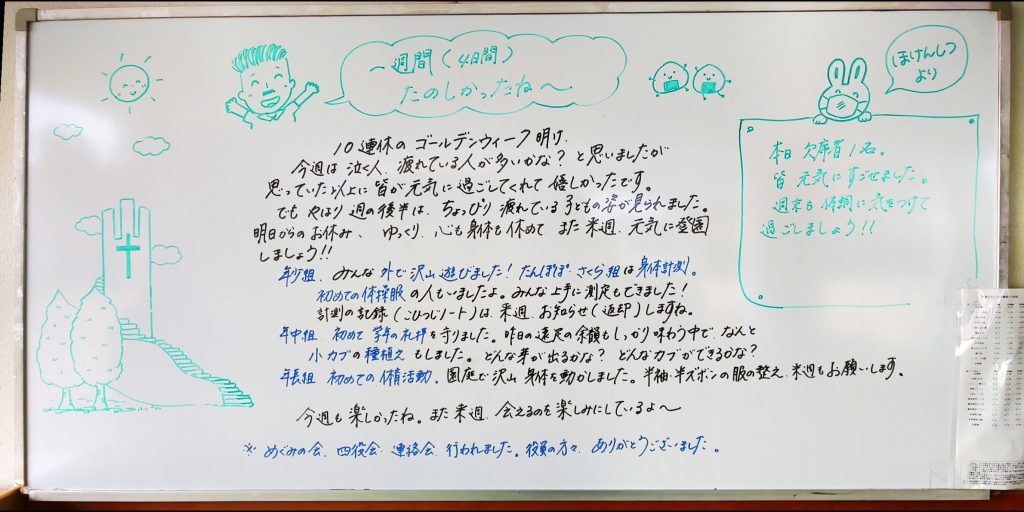 ～週間（4日間）
たのしかったね～
ほけんしつ
より
10連休の ゴールデンウィーク明け、
今週は 泣く人、疲れている人が多いかな？と思いましたが
思っていた以上に皆が元気に過ごしてくれて嬉しかったです。
でも やはり 週の後半は、ちょっぴり 疲れている 子どもの姿が見られました。
明日からのお休み、ゆっくり、心も身体も休めて、また 来週、元気に登園
しましょう!!
年少組、みんな 外で沢山 遊びました！たんぽぽ・さくら組は身体計測。
初めての体操服の人もいましたよ。みんな上手に測定もできました！
計測の記録（こひつじノート）は、来週、お知らせ（返却）しますね。
年中組、初めて 学年の礼拝を守りました。昨日の遠足の余韻もしっかり味わう中で、なんと
小カブの種植えもしました。どんな芽が出るかな？どんなカブができるかな？
年長組 初めての体育活動、園庭で沢山 身体を動かしました。半袖・半ズボンの服の整え、来週もお願いします。
今週も 楽しかったね。また 来週、会えるのを楽しみにしているよ～
※ めぐみの会、四役会、連絡会、行われました。役員の方々、ありがとうございました。
本日 欠席者 1名。
皆 元気に すごせました。
週末も 体調に気をつけて
過ごしましょう!!